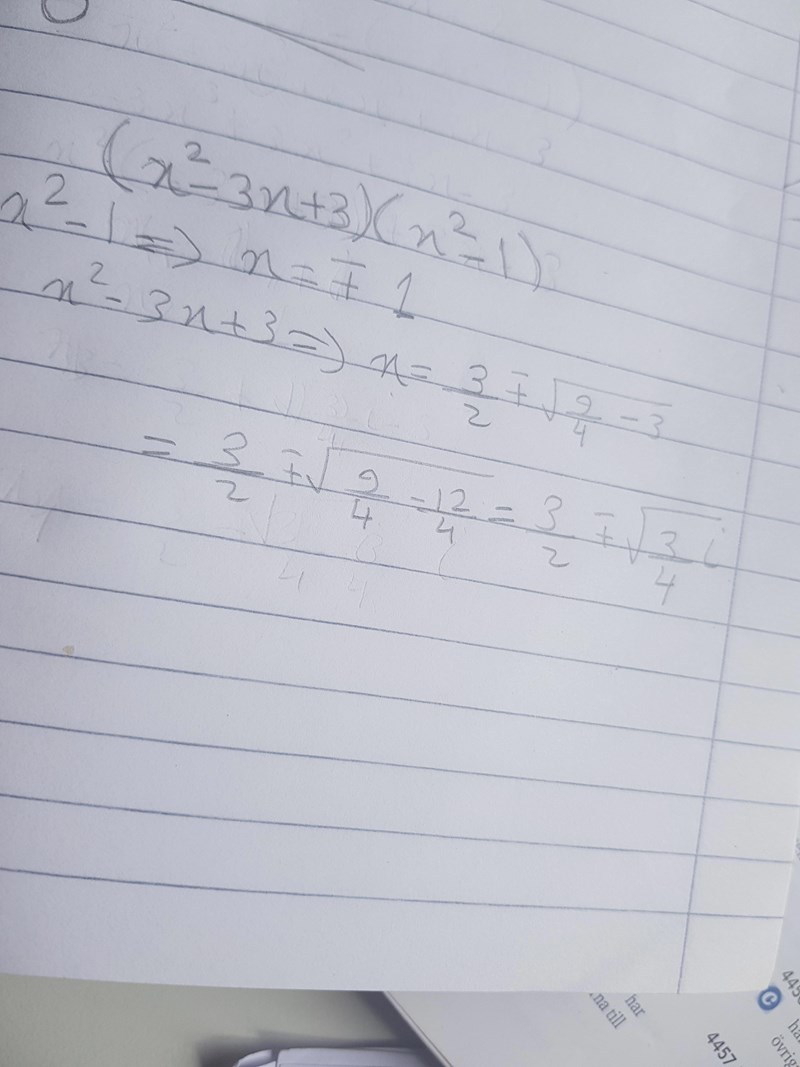 (x²-3x+3)(x²-1)
x²-1 => x = ∓ 1
x²-3x+3 => x = 3/2 ∓ √(9/4 - 3)
= 3/2 ∓ √(9/4 - 12/4) = 3/2 ∓ √(3/4) i
har
na till
4457
445
C
ha
övrig